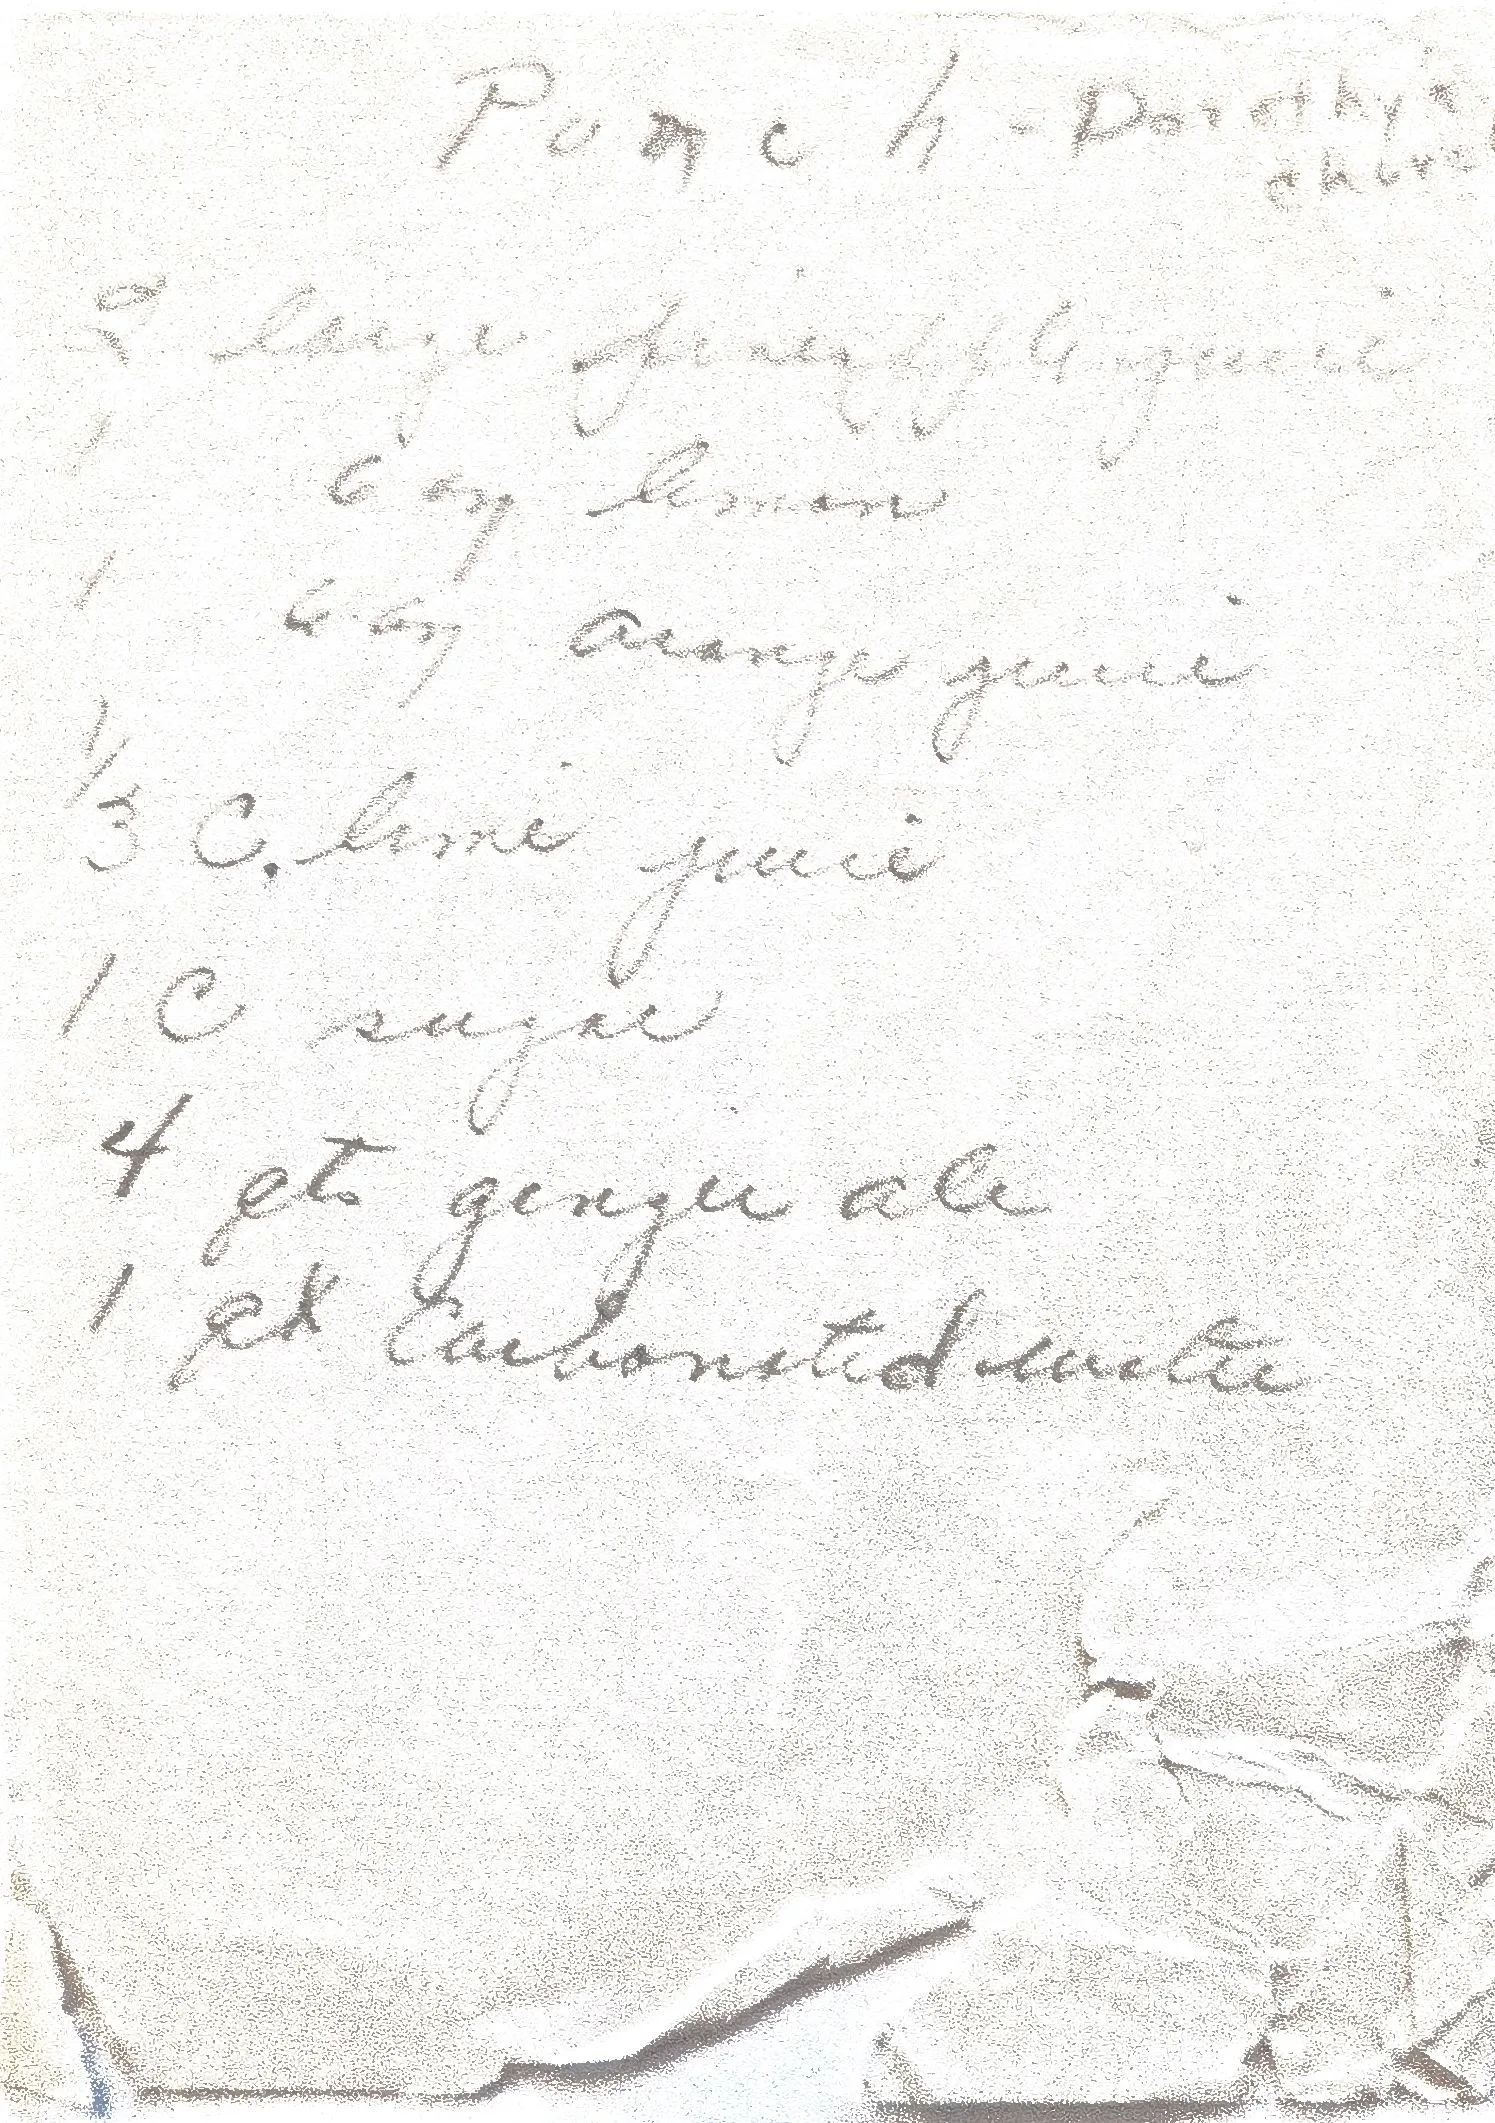 Punch - Dorothy's
large pineapple juice
1 6 oz lemon
1 6 oz orange juice
1/3 C. lime juice
1 C sugar
4 qts ginger ale
1 qt Carbonated water